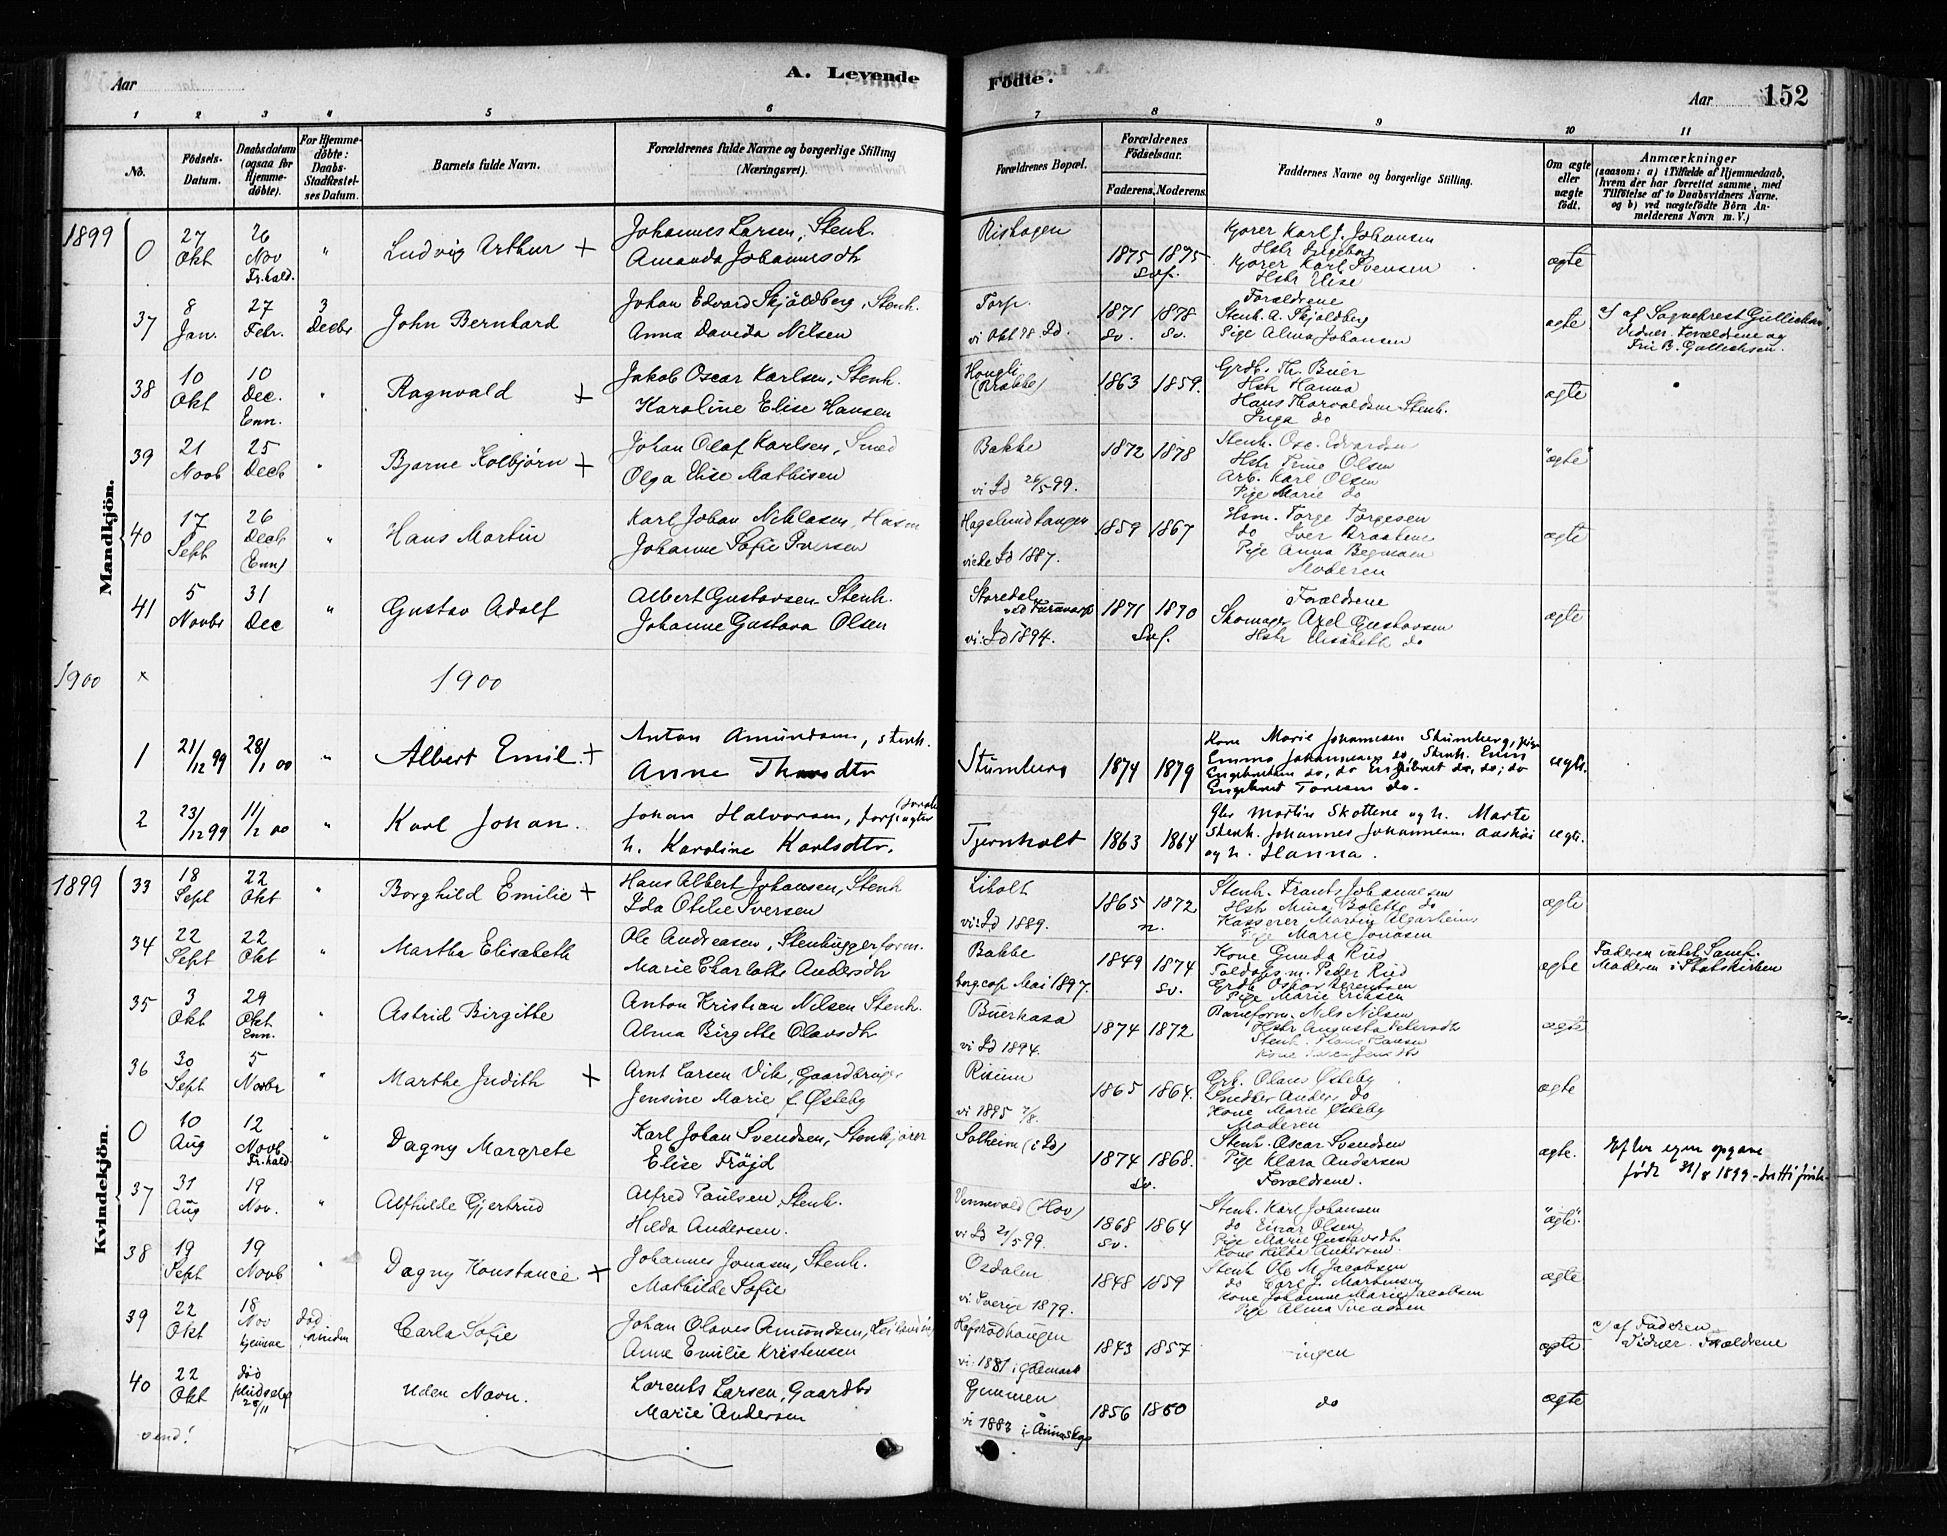 Aar
A. Levende
Fødte.
Aar
152
1 2 3 4 5 6 7 8 9 10 11
No.
Fødsels-Datum.
Daabsdatum (ogsaa for Hjemme-døbte).
For Hjemme-døbte: Daabs-Stadfæstel-ses Datum.
Barnets fulde Navn.
Forældrenes fulde Navne og borgerlige Stilling (Næringsvei).
Forældrenes Bopæl.
Forældrenes Fødselsaar.
Faderens. Moderens.
Faddernes Navne og borgerlige Stilling.
Om ægte eller uægte født.
Anmærkninger
(saasom: a) i Tilfælde af Hjemmedaab, hvem der har forrettet samme, med Tilføielse af to Daabsvidners Navne. og b) ved uægtefødte Börn An-melderens Navn m. V.)
Mandkjön.
1899
0 27 Okt 26 Nov Fr.hald. " Ludvig Arthur +
Johannes Larsen, Stenh.
Amanda Johannesdtr
Rishagen 1875 1875 Svf.
Kjører Karl J. Johansen
Hstr Ingeborg
Kjører Karl Svensen
Hstr Elise
ægte
37 8 Jan. 27 Febr. 3 Decbr John Bernhard
Johan Edvard Skjöldberg, Stenh.
Anna Davida Nilsen
Torp.
vi Okt 98. Id.
1871 Sv. 1878 Sv.
Forældrene
Stenh. A. Skjoldberg
Pige Alma Johansen
ægte
a) af Sogneprest Gullichsen
Vidner. Forældrene og
Fru B. Gullichsen.
38 10 Okt 10 Dec. Enn. " Ragnvald +
Jakob Oscar Karlsen, Stenh.
Karoline Elise Hansen
Hougli
(Brakke)
1863 1859.
Grdb. Th. Buer
Hstr Hanna
Hans Thorvaldsen Stenh.
Inga do
ægte
39 21 Novb 25 Decb " Bjarne Kolbjørn +
Johan Olaf Karlsen, Smed
Olga Elise Mathisen
Bakke
vi Id 26/5 99.
1872 1878
Stenh. Osc. Edvardsen
Hstr Trine Olsen
Arb. Karl Olsen
Pige Marie do
"ægte"
40 17 Sept 26 Decb (Enn) " Hans Martin
Karl Johan Niklasen, Husm
Johanne Sofie Iversen
Hagelundhaugen
viede Id 1887.
1859 1867
Hsm. Torge Torgesen
do Iver Braatene
Pige Anna Begmoen
Moderen
ægte
41 5 Novbr 31 Dec " Gustav Adolf
Albert Gustavsen Stenh.
Johanne Gustava Olsen
Storedal
vi: Id 1894.
1871 1870 Svf.
Forældrene
Skomager Axel Gustavsen
Hstr Elisabeth do
ægte
1900 × 1900
1 21/12 99 28/1 00 " Albert Emil. +
Anton Amundsen, stenh.
Anne Thorsdtr
Stumberg 1874 1879
Kone Marie Johannesen Stumberg, pige
Emma Johannesen do, Stenh. Enos
Engebretsen do, do Engebret do, do; do
Engebret Toresen do.
ægte.
2 23/12 99 11/2 00 " Karl Johan.
Johan Halvorsen, forpagter
h. Karoline Karlsdtr.
Tjernholt 1863 1864
Gbr Martin Skottene og h. Marte
Stenh. Johannes Johannesen
og h. Hanna.
ægte.
Kvindekjön.
1899
33 18 Sept 22 Okt " Borghild Emilie +
Hans Albert Johansen, Stenh
Ida Otilie Iversen
Liholt
vi: Id 1889.
1865 1872 n.
Stenh. Frants Johannesen
Hstr Mina Bolette do
Kasserer Martin Algarheim
Pige Marie Jonasen
ægte
34 22 Sept 22 Okt " Martha Elisabeth
Ole Andreasen, Stenhuggerform.
Marie Charlotte Andersdtr
Bakke
borg.cop Mai 1897.
1849 1874 sv.
Kone Gunda Ried
Toldops.m. Peder Ried
Grdb Oskar Berentsen
Pige Marie Eriksen
ægte
Faderen udtt Samf.
Moderen i Statskirken
35 3 Okt 29 Okt Enn. " Astrid Birgitte
Anton Kristian Nilsen Stenh.
Alma Birgitte Olavsdtr
Buerkasa
vi Id 1894.
1874 1872
Baneform. Nils Nilsen
Hstr Augusta Pedersdtr
Stenh. Hans Hansen
ægte
36 30 Sept 5 Novbr " Marthe Judith +
Arnt Larsen Vik, Gaardbruger
Jensine Marie f. Østeby
Risum
vi 1895 7/8.
1865 1864.
Grb. Olaus Østeby
Snedker Anders do
Kone Marie Østeby
Moderen
ægte
0 10 Aug 12 Novb Fr.hald. " Dagny Margrete
Karl Johan Svendsen, Stenkjører
Elise Frøjd
Solheim (i Id)
1874 1868. sv.
Stenh. Oscar Svendsen
Pige Klara Andersen
Forældrene.
ægte.
Efter egen opgave
født 31/8 1899
37 31 Aug 19 Nov. " Alfhilde Gjertrud
Alfred Paulsen, Stenh.
Hilda Andersen.
Vennevold (Hov)
vi Id 21/5 99.
1868 sv. 1864
Stenh. Karl Johansen
do Einar Olsen
Pige Marie Gustavsdtr
Kone Hilda Andersen.
"ægte".
38 19 Sept 19 Novb " Dagny Konstance +
Johannes Jonasen, Stenh.
Mathilde Sofie
Osdalen
vi Sverige 1879.
1848 1859
Stenh Ole M. Jacobsen
do Carl J. Martensen
Kone Johanne Marie Jacobsen
Pige Alma Svendsen
ægte
39 22 Okt 18 Nov hjemme død Carla Sofie
Johan Olaves Amundsen, Leilending
Anne Emilie Kristensen
Hafsrödhaugen
vi: 1881 i Idemark
1843 1857
ingen
ægte
a) af Faderen
Vidner. Forældrene
40 22 Okt død pludselig 28/11 Uden Navn.
Lorents Larsen, Gaardbr
Marie Andersen
Grimmen
vi 1883 i Aremark
1856 1860
do
ægte
vend!